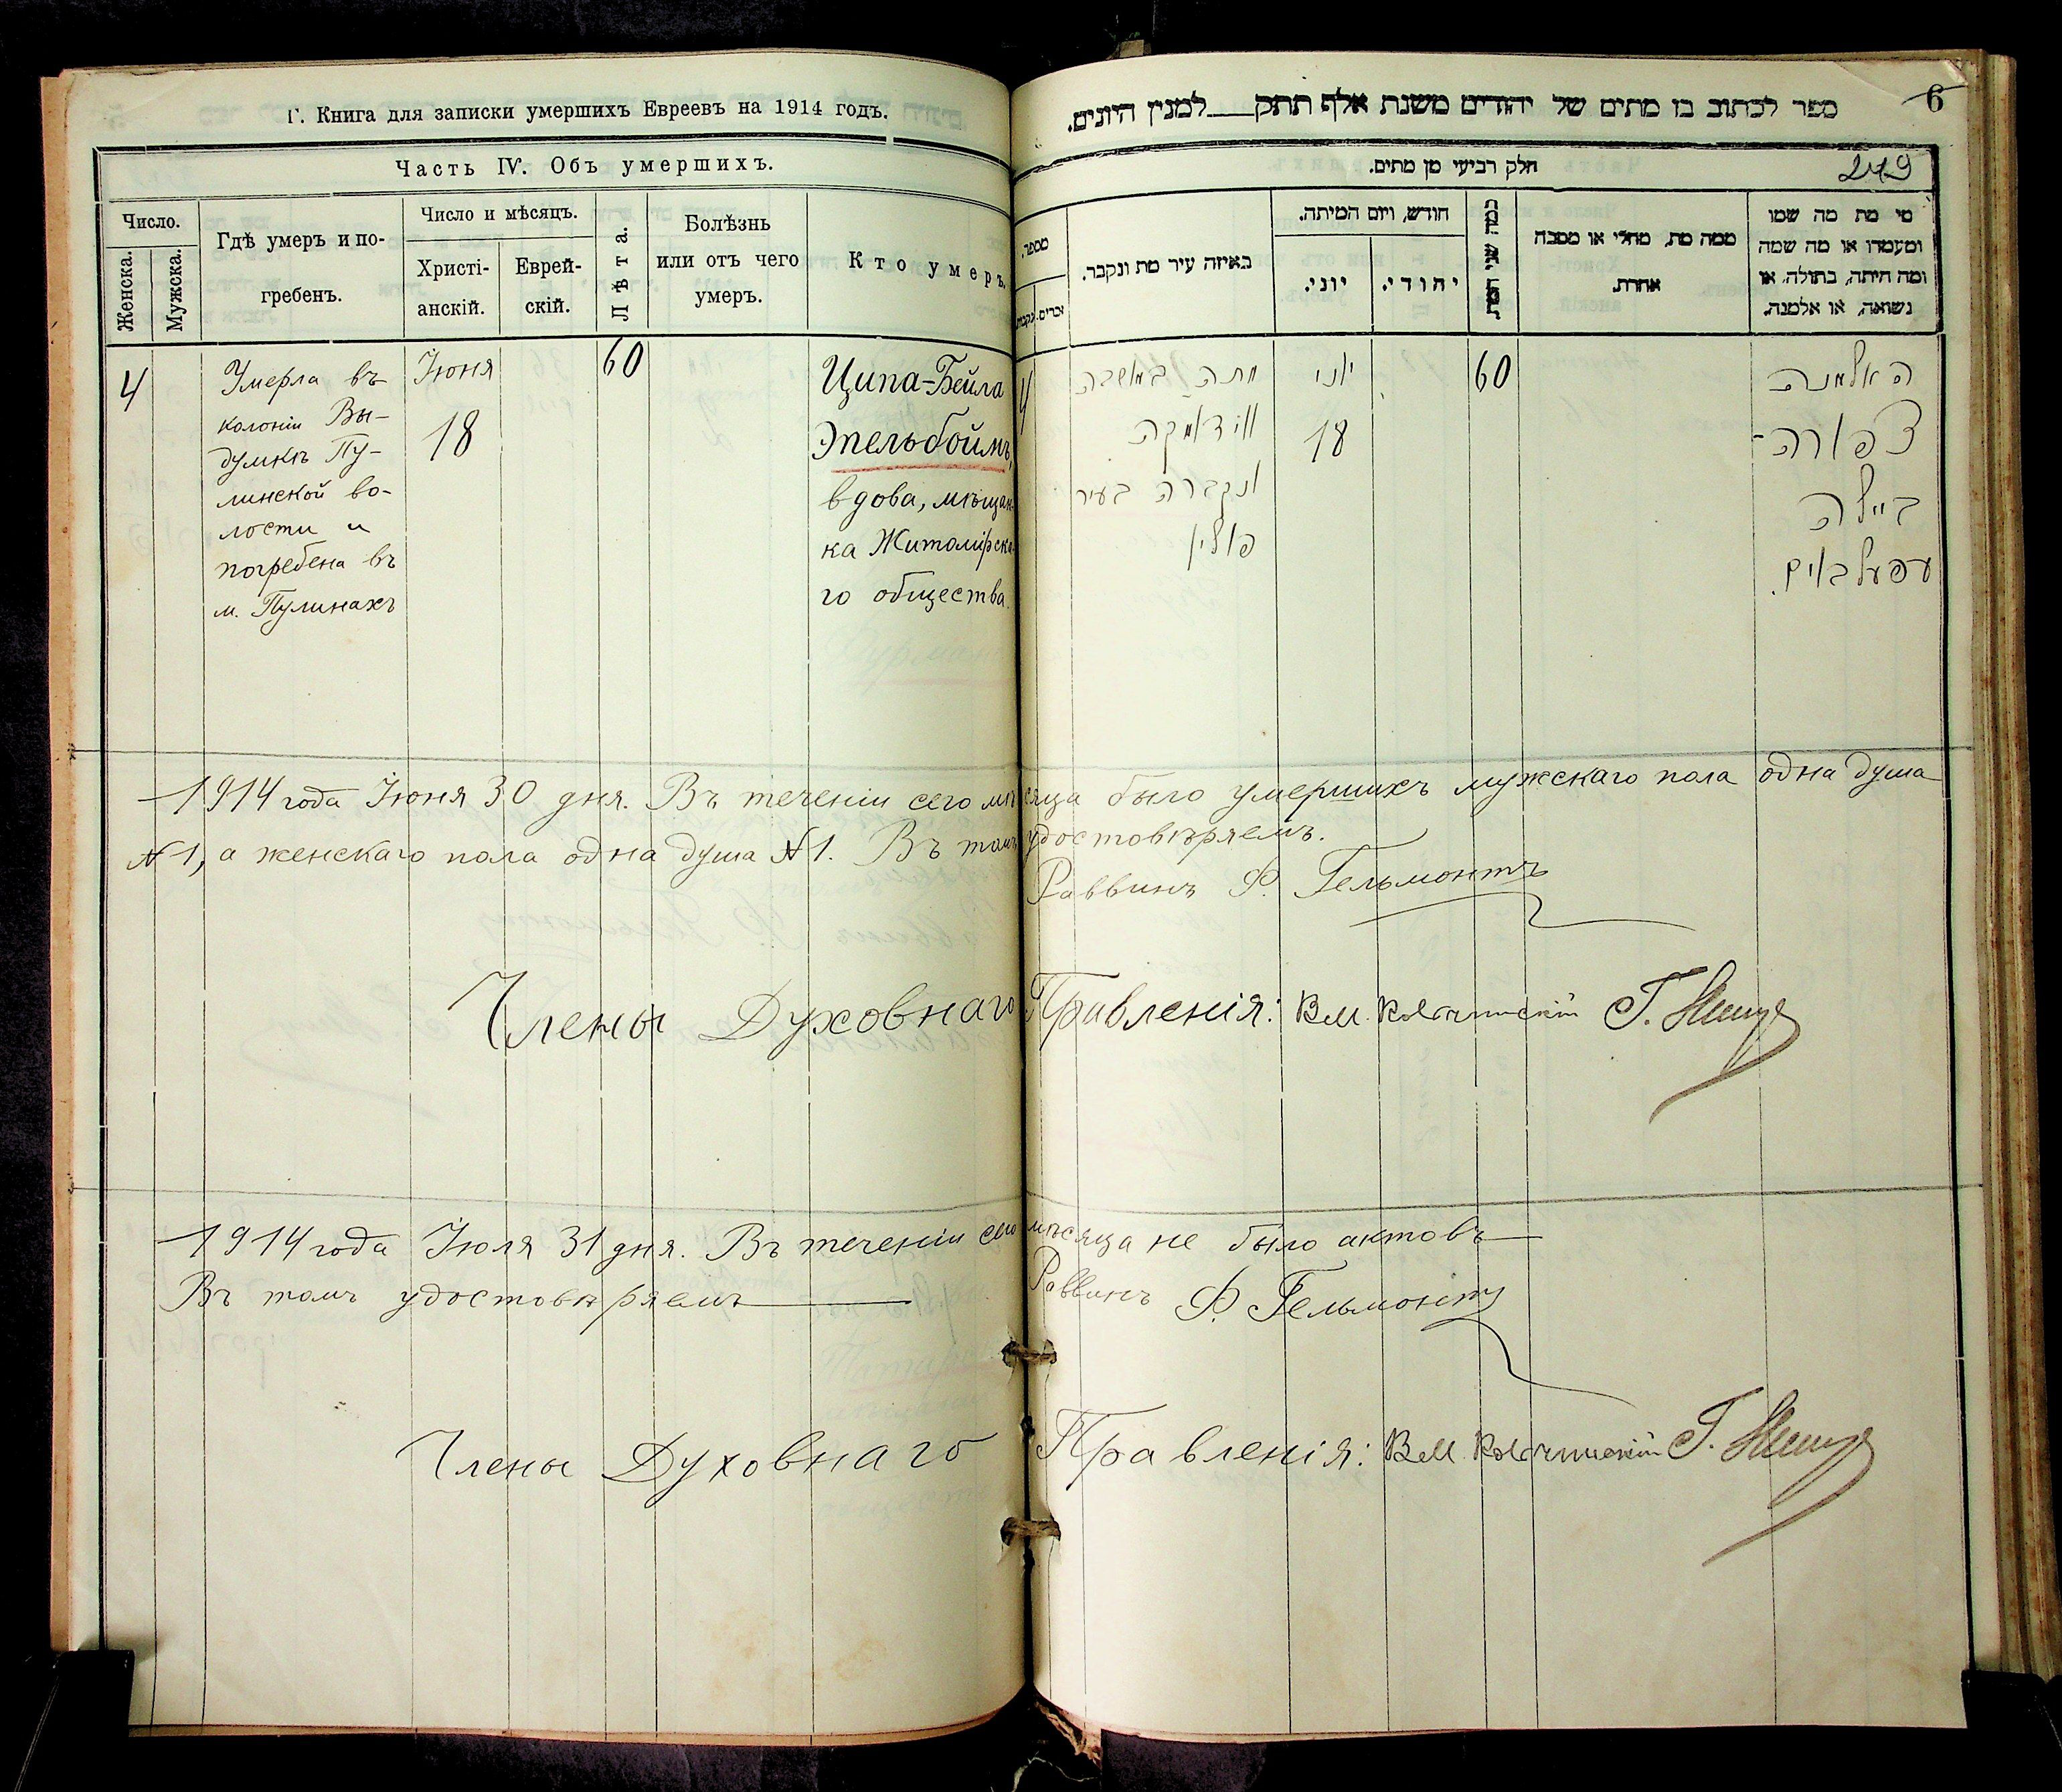 Г. Книга для записки умершихъ Евреевъ на 1914 годъ.
Часть IV. Объ умершихъ.
Число.
Женска.
Мужска.
Гдѣ умеръ и по-
гребенъ.
Число и мѣсяцъ.
Христі-
анскій.
Еврей-
скій.
Лѣта.
Болѣзнь
или отъ чего
умеръ.
Кто умеръ.
4
Умерла въ
колоніи Вы-
думкѣ Пу-
линской во-
лости и
погребена въ
м. Пулинахъ
Іюня
18
60
Ципа-Бейла
Эпельбоймъ,
вдова, мѣщан-
ка Житомірска-
го общества.
ספר לכתוב בו מתים של יהודים משנת אלף תתק למנין היונים.
6
חלק רביעי מן מתים.
249
מספר,
זכרים.
נקבות
באיזה עיר מת ונקבר.
חודש, ויום המיתה.
יוני.
יהודי.
כמה שני המת
ממה מת, מחלי או מסבה
אחרת.
מי מת מה שמו
ומעמדו או מה שמה
ומה היתה, בתולה, או
נשואה, או אלמנה.
4
מתה במושבה
ווידומקה
ונקברה בעיר
פולין
יוני
18
60
האלמנה
צפורה-
ביילה
עפעלבוים.
1914 года Іюня 30 дня. Въ теченіи сего мѣсяца было умершихъ мужскаго пола одна душа
№1, а женскаго пола одна душа №1. Въ томъ удостовѣряемъ.
Раввинъ Ф. Гельмонтъ
Члены Духовнаго Правленія:
1914 года Іюля 31 дня. Въ теченіи сего мѣсяца не было актовъ
Въ томъ удостовѣряемъ
Раввинъ Ф. Гельмонтъ
Члены Духовнаго Правленія: